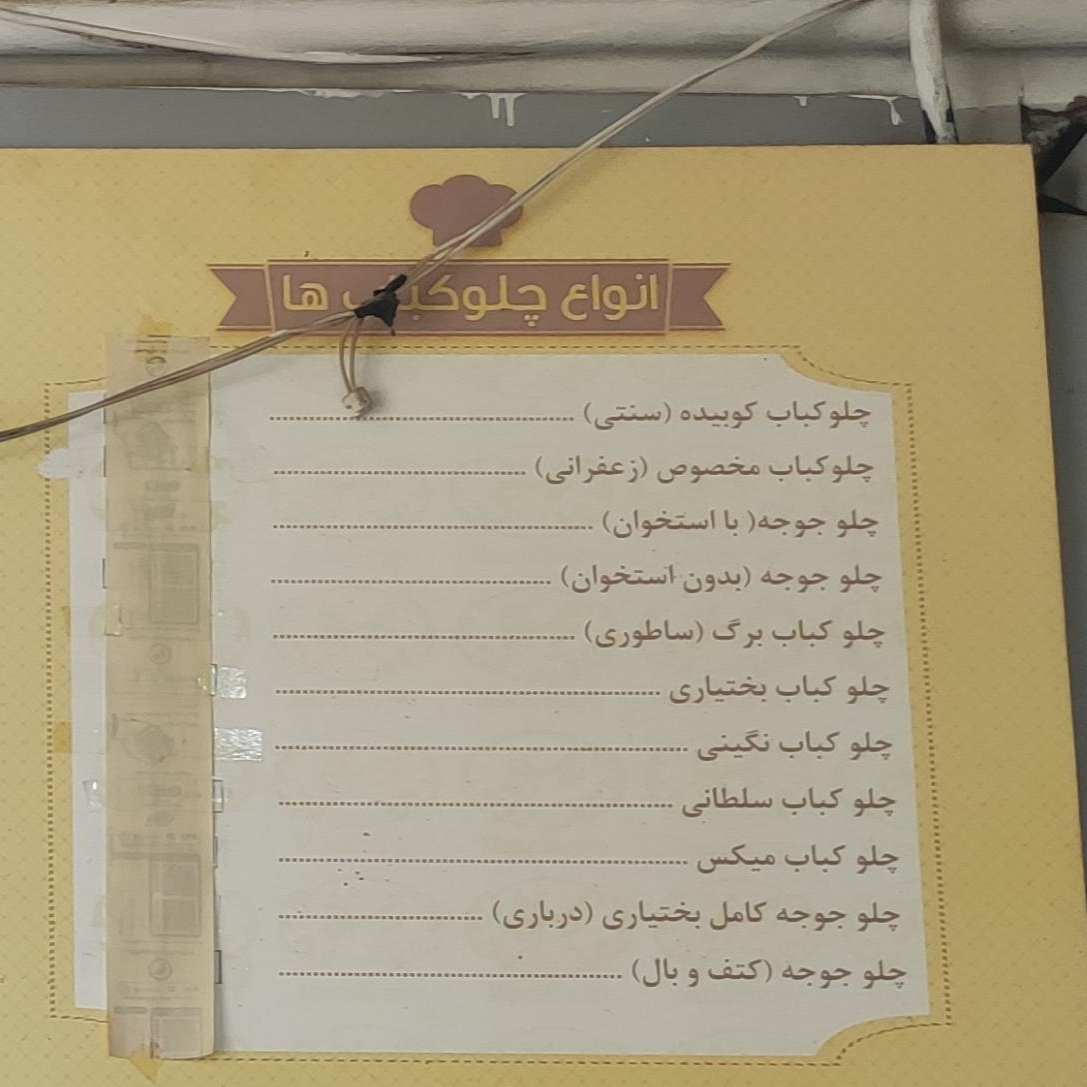 انواع چلوکباب ها
چلوکباب کوبیده (سنتی) ........................................
چلوکباب مخصوص (زعفرانی) ........................................
چلو جوجه( با استخوان) ........................................
چلو جوجه (بدون استخوان) ........................................
چلو کباب برگ (ساطوری) ........................................
چلو کباب بختیاری ........................................
چلو کباب نگینی ........................................
چلو کباب سلطانی ........................................
چلو کباب میکس ........................................
چلو جوجه کامل بختیاری (درباری) ........................................
چلو جوجه (کتف و بال) ........................................